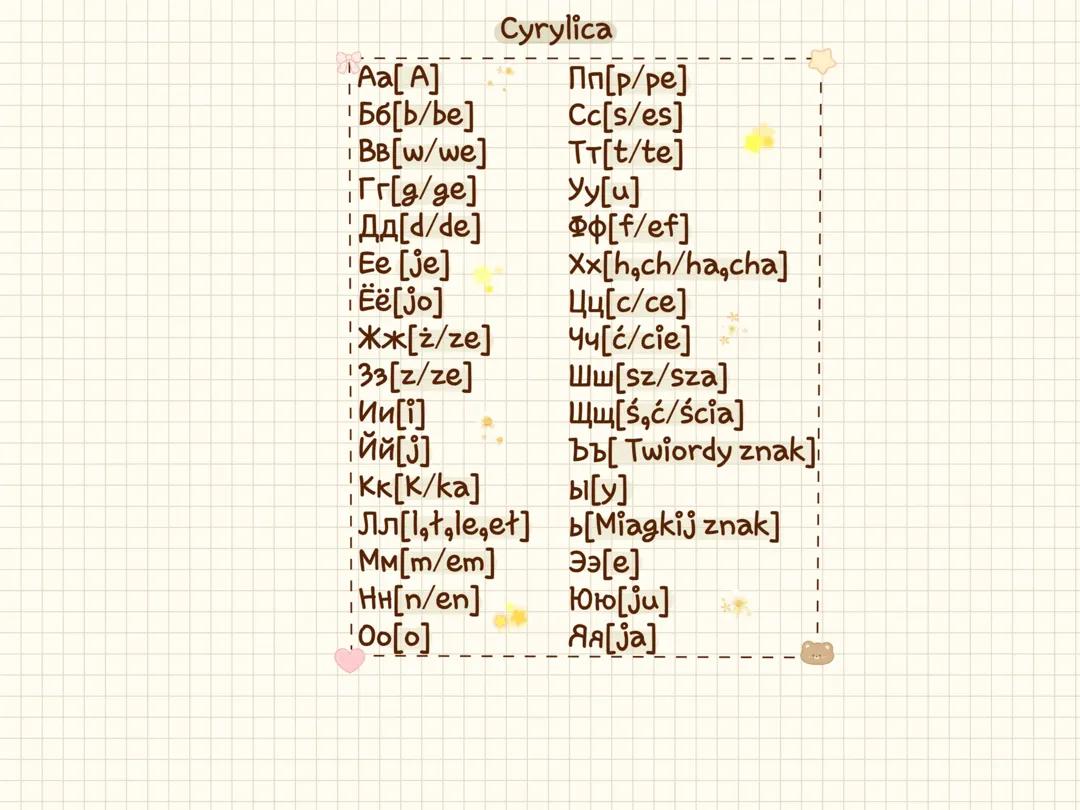 Cyrylica
Аа[ A]
Бб[b/be]
Вв[w/we]
Гг[g/ge]
Дд[d/de]
Ее [je]
Ёё[jo]
Жж[ż/ze]
Зз[z/ze]
Ии[i]
Йй[j]
Кк[K/ka]
Лл[l,ł,le,eł]
Мм[m/em]
Нн[n/en]
Оо[o]
Пп[p/pe]
Сс[s/es]
Тт[t/te]
Уу[u]
Фф[f/ef]
Хх[h,ch/ha,cha]
Цц[c/ce]
Чч[ć/cie]
Шш[sz/sza]
Щщ[ś,ć/ścia]
Ъъ[ Twiordy znak]
ы[y]
ь[Miagkij znak]
Ээ[e]
Юю[ju]
Яя[ja]